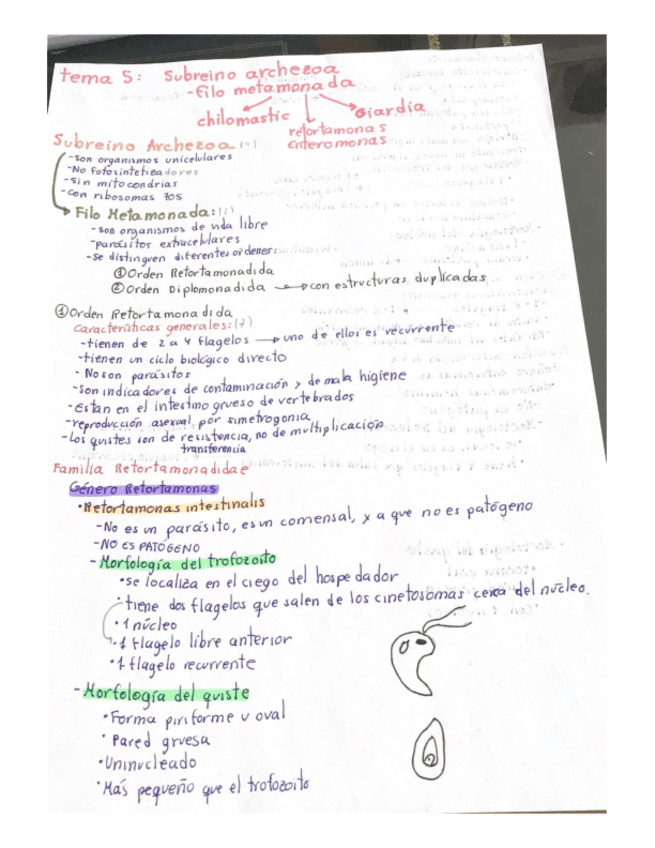 tema 5: Subreino archezoa
-filo metamonada
chilomastic
Giardia
retortamonas
enteromonas
Subreino Archezoa (4)
-son organismos unicelulares
-No fotosintetizadores
-Sin mitocondrias
-con ribosomas 70s
Filo Metamonada: (2)
-son organismos de vida libre
-parásitos extracelulares
-se distinguen diferentes ordenes:
① Orden Retortamonadida
② Orden Diplomonadida → con estructuras duplicadas
① Orden Retortamonadida
Características generales: (7)
-tienen de 2 a 4 flagelos → uno de ellos es recurrente
-tienen un ciclo biológico directo
- No son parásitos
-Son indicadores de contaminación y de mala higiene
-Estan en el intestino grueso de vertebrados
-reproducción asexual por simetrogonia
-Los quistes son de resistencia, no de multiplicación
transferencia
Familia Retortamonadidae
Género Retortamonas
•Retortamonas intestinalis
-No es un parásito, es un comensal, ya que no es patógeno
-NO ES PATÓGENO
-Morfología del trofozoito
•se localiza en el ciego del hospedador
•tiene dos flagelos que salen de los cinetosomas cerca del núcleo.
•1 núcleo
•1 flagelo libre anterior
•1 flagelo recurrente
-Morfología del quiste
•Forma piriforme u oval
•Pared gruesa
•Uninucleado
•Más pequeño que el trofozoito